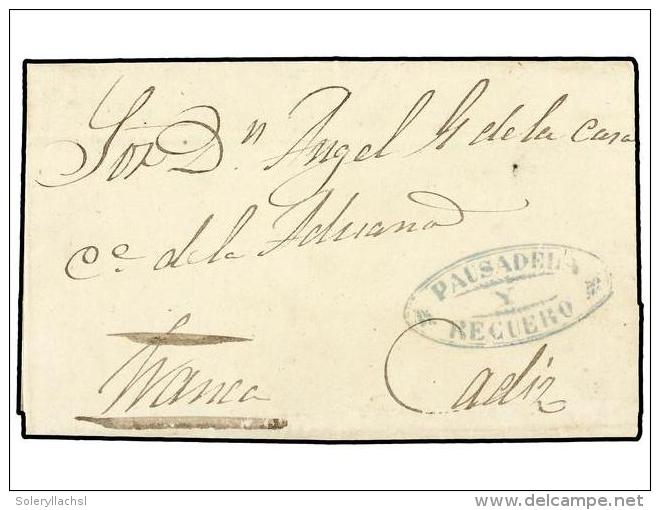 Sor Dn. Angel G de la Casa
Ce. de la Aduana
PAUSADELA
Y
RECUERO
Franca
Cadiz
Soleryllachsl
delcampe.net